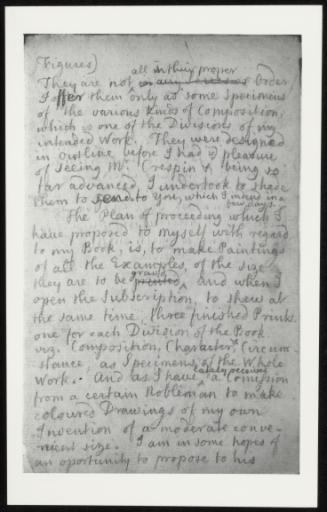 Figures)
They are not all in their proper Order
I offer them only as some Specimens
of the various Kinds of Composition,
which is one of the Divisions of my
intended Work. They were designed
in outline before I had y pleasure
of seeing Mr. Crespin & being so
far advanced, I undertook to shade
them to send to You, which I intend in a
few days.
The Plan of proceeding which I
have proposed to myself with regard
to my Book, is, to make Paintings
of all the Examples, of the size
they are to be graved, and when I
open the Subscription, to shew at
the same time, three finished Prints
one for each Division of the Book
viz. Composition, Character, Circum
stance, as Specimens of the Whole
Work. And as I have lately received a Comission
from a certain Nobleman to make
coloured Drawings of my own
Invention of a moderate conve-
nient size. I am in some hopes of
an oportunity to propose to his